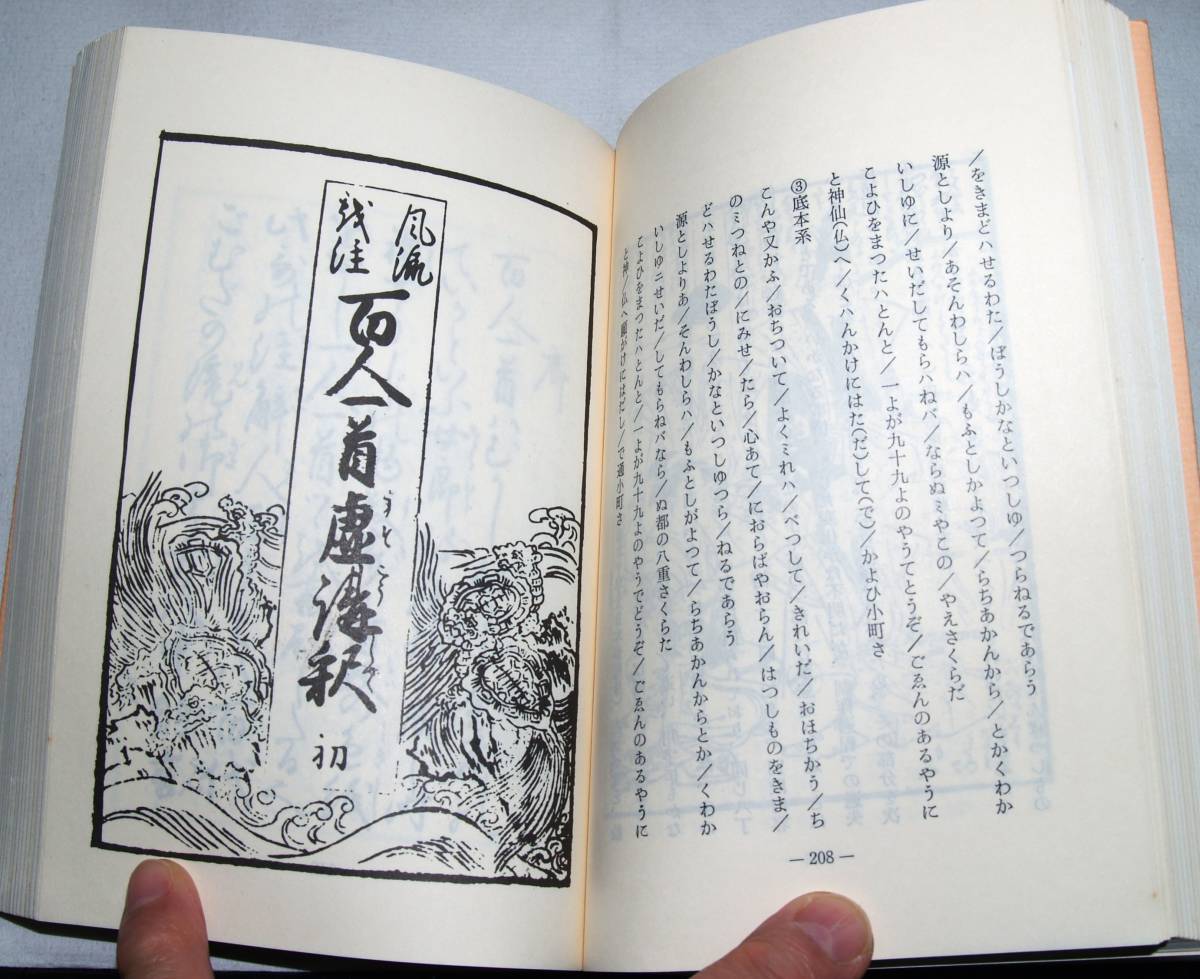 ／をきまどハせるわた／ぼうしかなといつしゆ／つらねるであらう
源としより／あそんわしらハ／もふとしかよつて／らちあかんから／とかくわか
いしゆに／せいだしてもらハねバ／ならぬミやこの／やえさくらだ
こよひをまつたハとんと／一よが九十九よのやうてとうぞ／ごゑんのあるやうに
と神仙(仏)へ／くハんかけにはた(だ)して(で)／かよひ小町さ
③底本系
こんや又かふ／おちついて／よくミれハ／べつして／きれいだ／おほちかう／ち
のミつねとの／にみせ／たら／心あて／におらばやおらん／はつしものをきま／
どハせるわたぼうし／かなといつしゆつら／ねるであらう
源としよりあ／そんわしらハ／もふとしがよつて／らちあかんからとか／くわか
いしゆニせいだ／してもらねバなら／ぬ都の八重さくらた
こよひをまつたハとんと／一よが九十九よのやうでどうぞ／ごゑんのあるやうに
と神／仏へ願がけにはだし／で通小町さ
— 208 —
風流
戯注
百人一首虚講釈
うそこうしやく
初